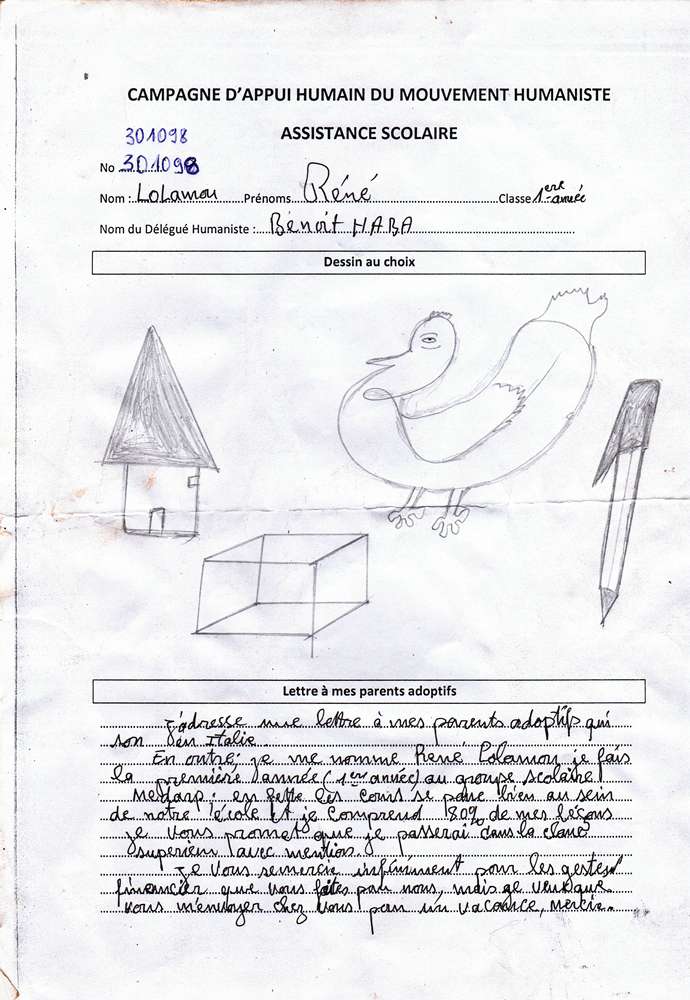 CAMPAGNE D'APPUI HUMAIN DU MOUVEMENT HUMANISTE
ASSISTANCE SCOLAIRE
301098
No 301098
Nom : Lolamou Prénoms Réné Classe 1ere année
Nom du Délégué Humaniste : Benoit HABA
Dessin au choix
Lettre à mes parents adoptifs
J'adresse une lettre à mes parents adoptifs qui
son en Italie
En outre; je me nomme René Lolamou je fais
la première année (1ere année) au groupe scolaire
Medarp; en fette les cours se passe bien au sein
de notre école et je comprend 80% de mes leçons
je vous promet que je passerai dans la classe
superieur avec mention.
Je vous remercie infiniment pour les gestes
financier que vous faites pour nous, mais je veux que
vous m'envoyer chez vous pour un vacance, mercie.